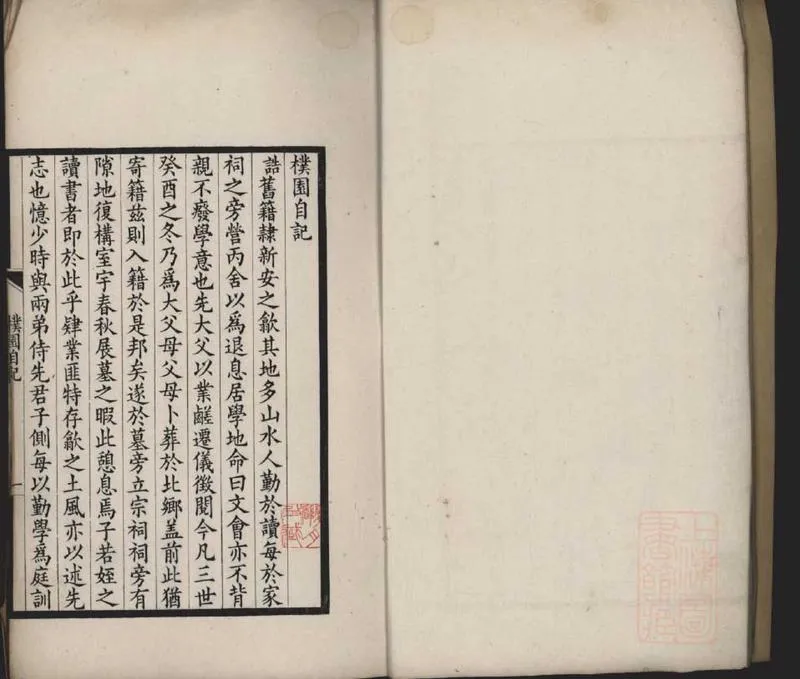 樸園自記
誥舊籍隸新安之歙其地多山水人勤於讀每於家
祠之旁營丙舍以為退息居學地命曰文會亦不背
親不廢學意也先大父以業鹺遷儀徵閱今凡三世
癸酉之冬乃爲大父母父母卜葬於北鄉盖前此猶
寄籍茲則入籍於是邦矣遂於墓旁立宗祠祠旁有
隙地復構室宇春秋展墓之暇此憩息焉子若姪之
讀書者即於此乎肄業匪特存歙之土風亦以述先
志也憶少時與兩弟侍先君子側每以勤學為庭訓
樸園自記
一